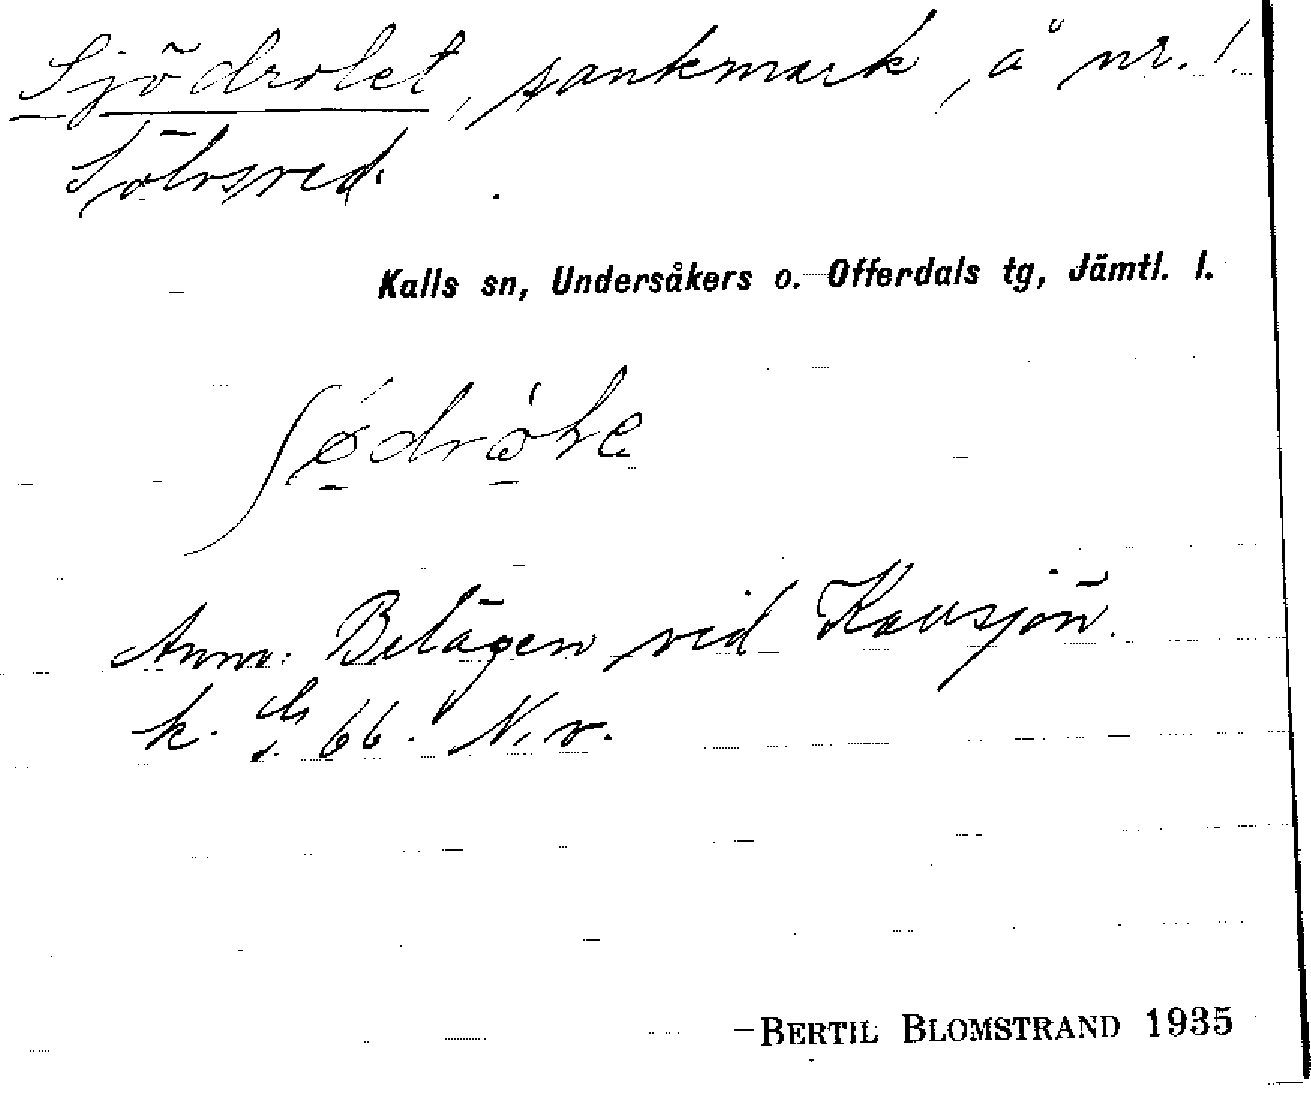 Sjödrolet, sankmark, å nr. 1.
Sölvsved.
Kalls sn, Undersåkers o. Offerdals tg, Jämtl. l.
Anm. Belägen vid Kallsjön.
k. 66. N. v.
BERTIL BLOMSTRAND 1935